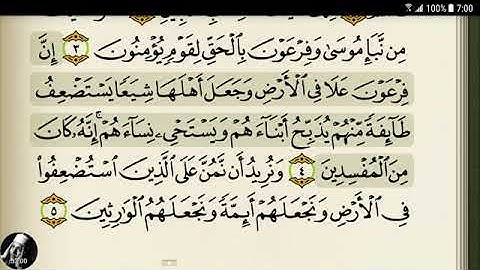 100% 7:00
مِن نَّبَإِ مُوسَىٰ وَفِرْعَوْنَ بِالْحَقِّ لِقَوْمٍ يُؤْمِنُونَ ٣ إِنَّ
فِرْعَوْنَ عَلَا فِي الْأَرْضِ وَجَعَلَ أَهْلَهَا شِيَعًا يَسْتَضْعِفُ
طَائِفَةً مِّنْهُمْ يُذَبِّحُ أَبْنَاءَهُمْ وَيَسْتَحْيِي نِسَاءَهُمْ ۚ إِنَّهُ كَانَ
مِنَ الْمُفْسِدِينَ ٤ وَنُرِيدُ أَن نَّمُنَّ عَلَى الَّذِينَ اسْتُضْعِفُوا
فِي الْأَرْضِ وَنَجْعَلَهُمْ أَئِمَّةً وَنَجْعَلَهُمُ الْوَارِثِينَ ٥